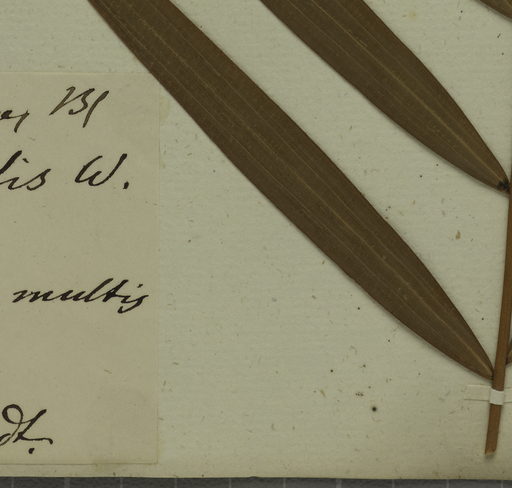 Bl
lis W.
multis
dt.